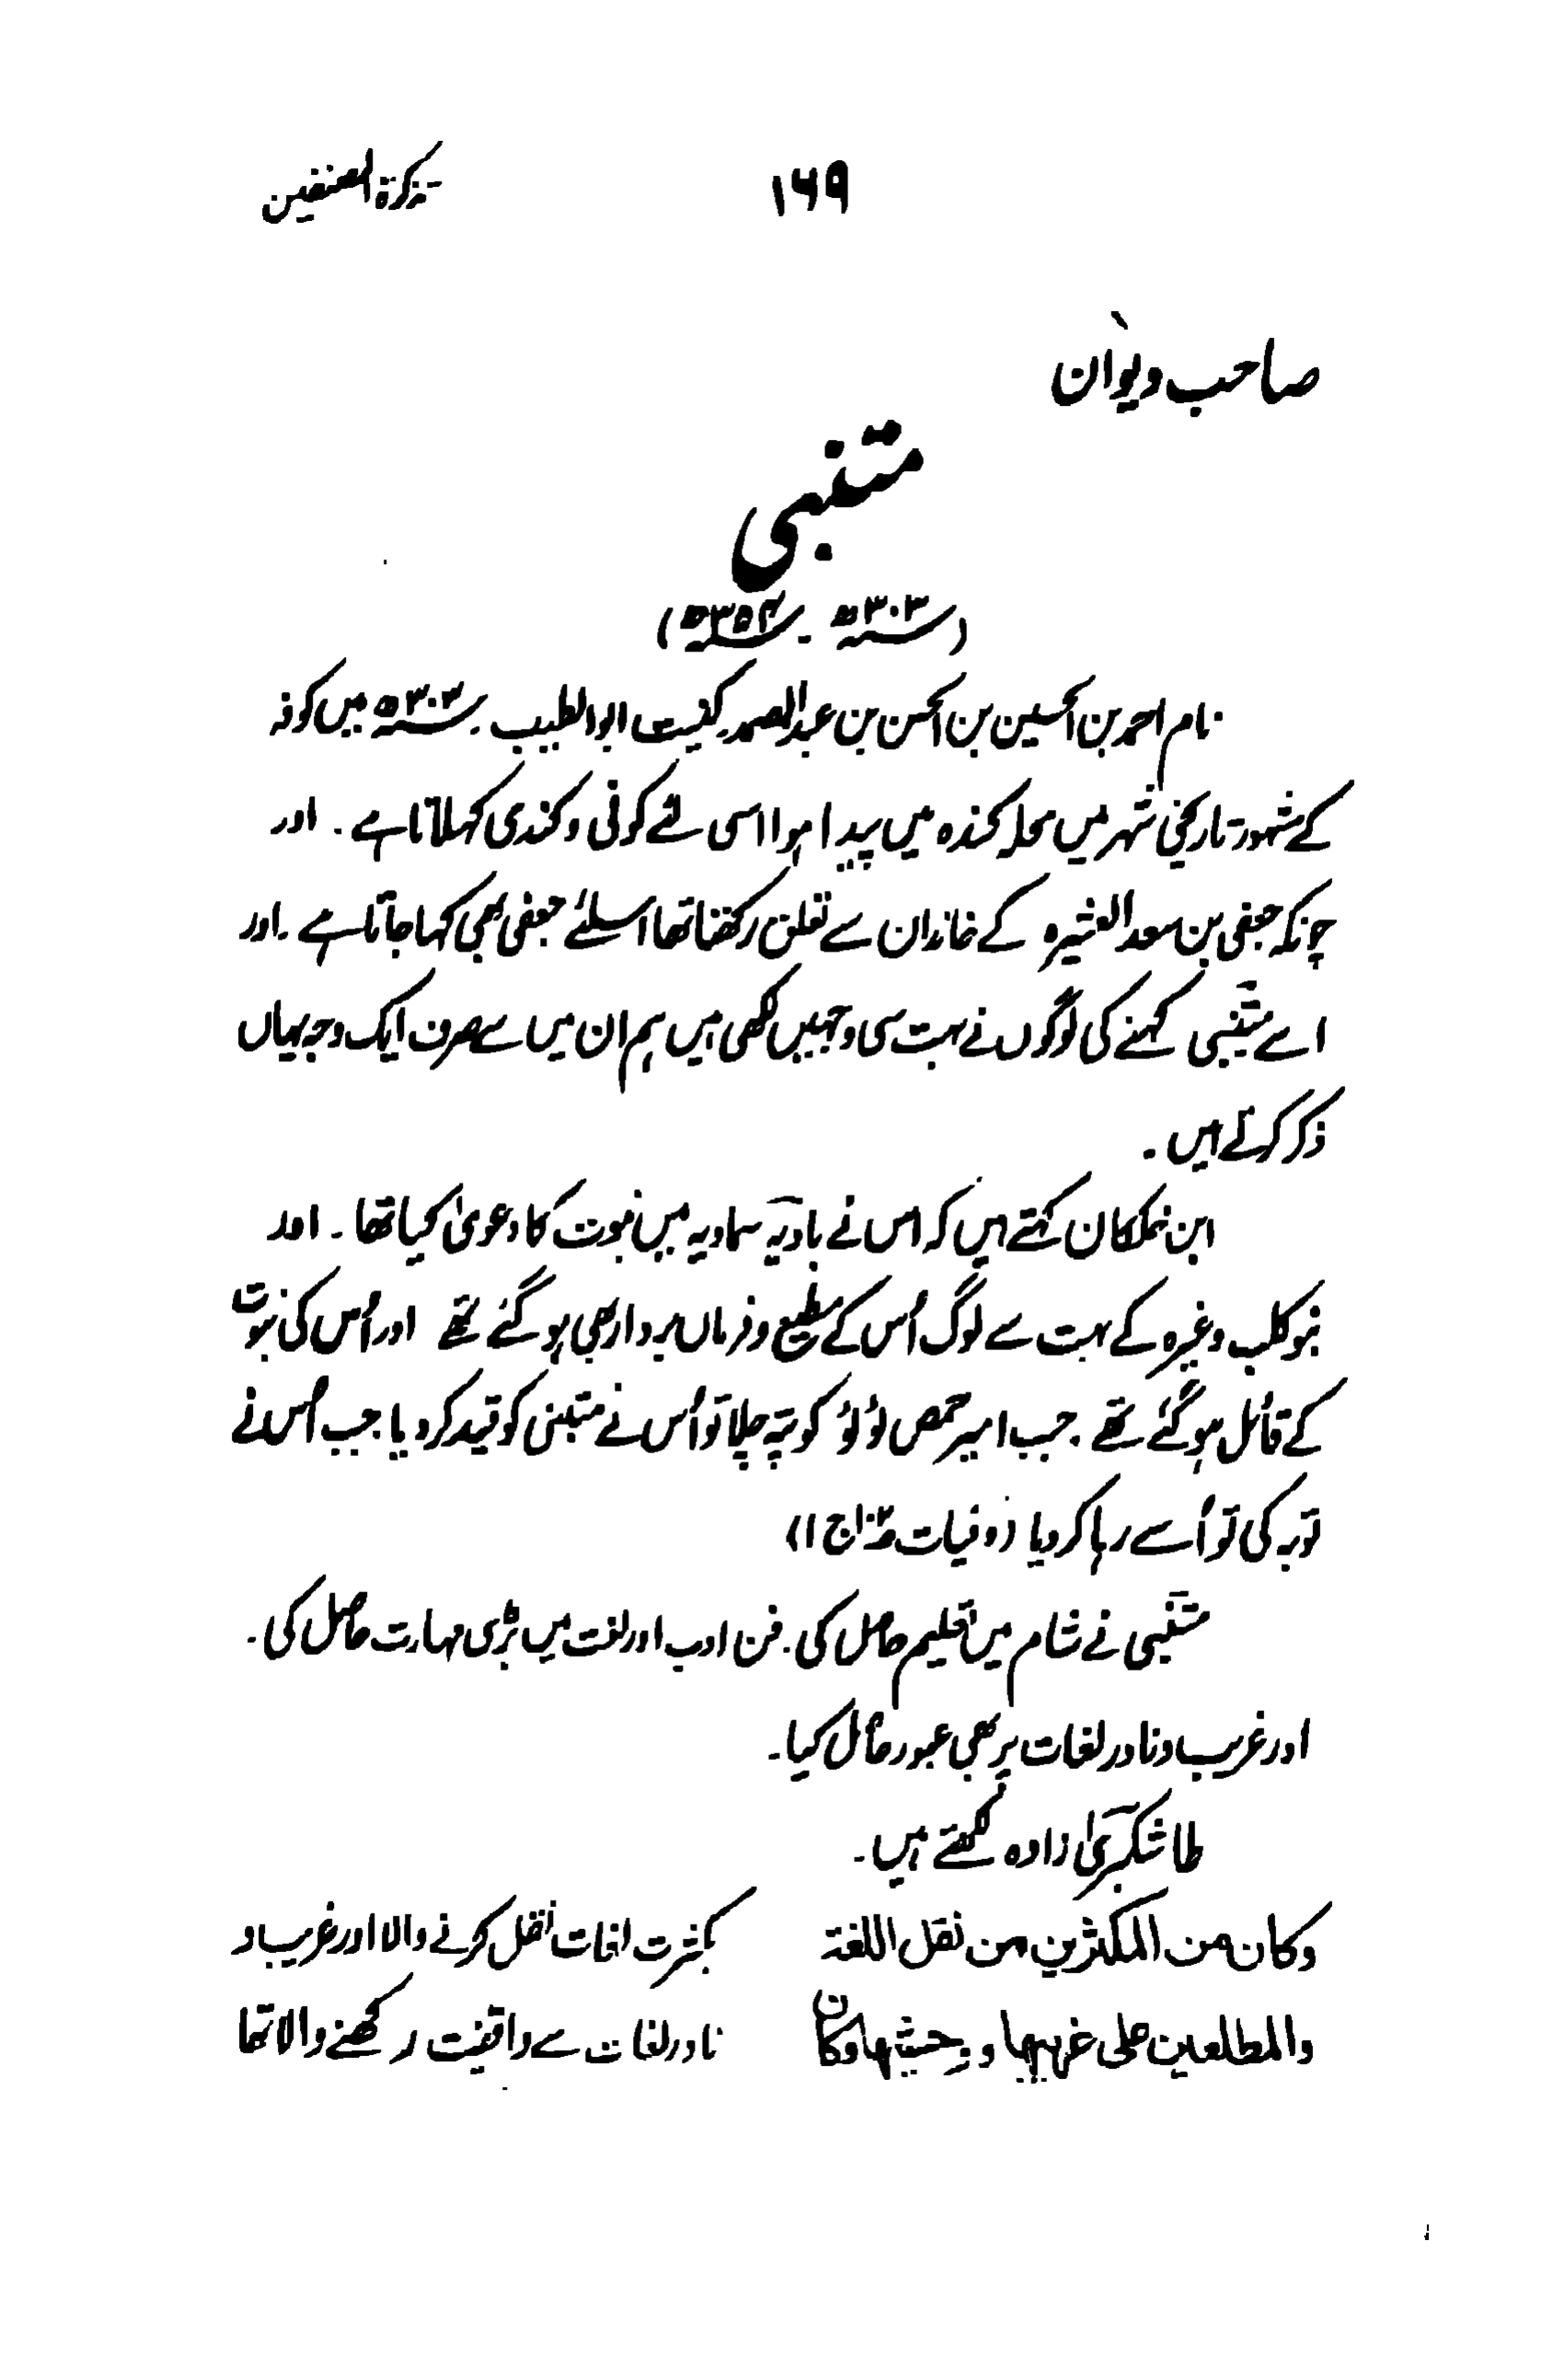 تذکرۃ المصنفین
۱۶۹
صاحب دیوان
متنبی
(۳۰۳ھ ۔ ۳۵۴ھ)
نام احمد بن الحسین بن الحسن بن عبدالصمد۔ کنیت ابوالطیب ۔ ۳۰۳ھ میں کوفہ
کے مشہور تاریخی شہر میں محلہ کندہ میں پیدا ہوا اسی لئے کوفی و کندی کہلاتا ہے ۔ اور
چونکہ جعفی بن سعد العشیرہ کے خاندان سے تعلق رکھتا تھا اسلئے جعفی بھی کہا جاتا ہے ۔ اور
اسے متنبی کہنے کی لوگوں نے بہت سی وجہیں لکھی ہیں ہم ان میں سے صرف ایک وجہ یہاں
ذکر کرتے ہیں ۔
ابن خلکان کہتے ہیں کہ اس نے بادیہ سماویہ میں نبوت کا دعویٰ کیا تھا ۔ اور
بنو کلب وغیرہ کے بہت سے لوگ اُس کے مطیع و فرماں بردار بھی ہو گئے تھے اور اُس کی نبوت
کے قائل ہو گئے تھے ۔ جب امیر حمص لؤلؤ کو پتہ چلا تو اُس نے متبنی کو قید کر دیا ۔ جب اُس نے
توبہ کی تو اُسے رہا کر دیا (وفیات ج ۱)
متنبی نے شام میں تعلیم حاصل کی ۔ فن ادب اور لغت میں بڑی مہارت حاصل کی ۔
اور غریب و نادر لغات پر بھی عبور حاصل کیا ۔
طاشکبریٰ زادہ لکھتے ہیں ۔
وکان من المکثرین من نقل اللغة
والمطلعین علی غریبها و وحشیها وکان
بکثرت لغات نقل کرنے والا اور غریب و
نادر لغات سے واقفیت رکھنے والا تھا